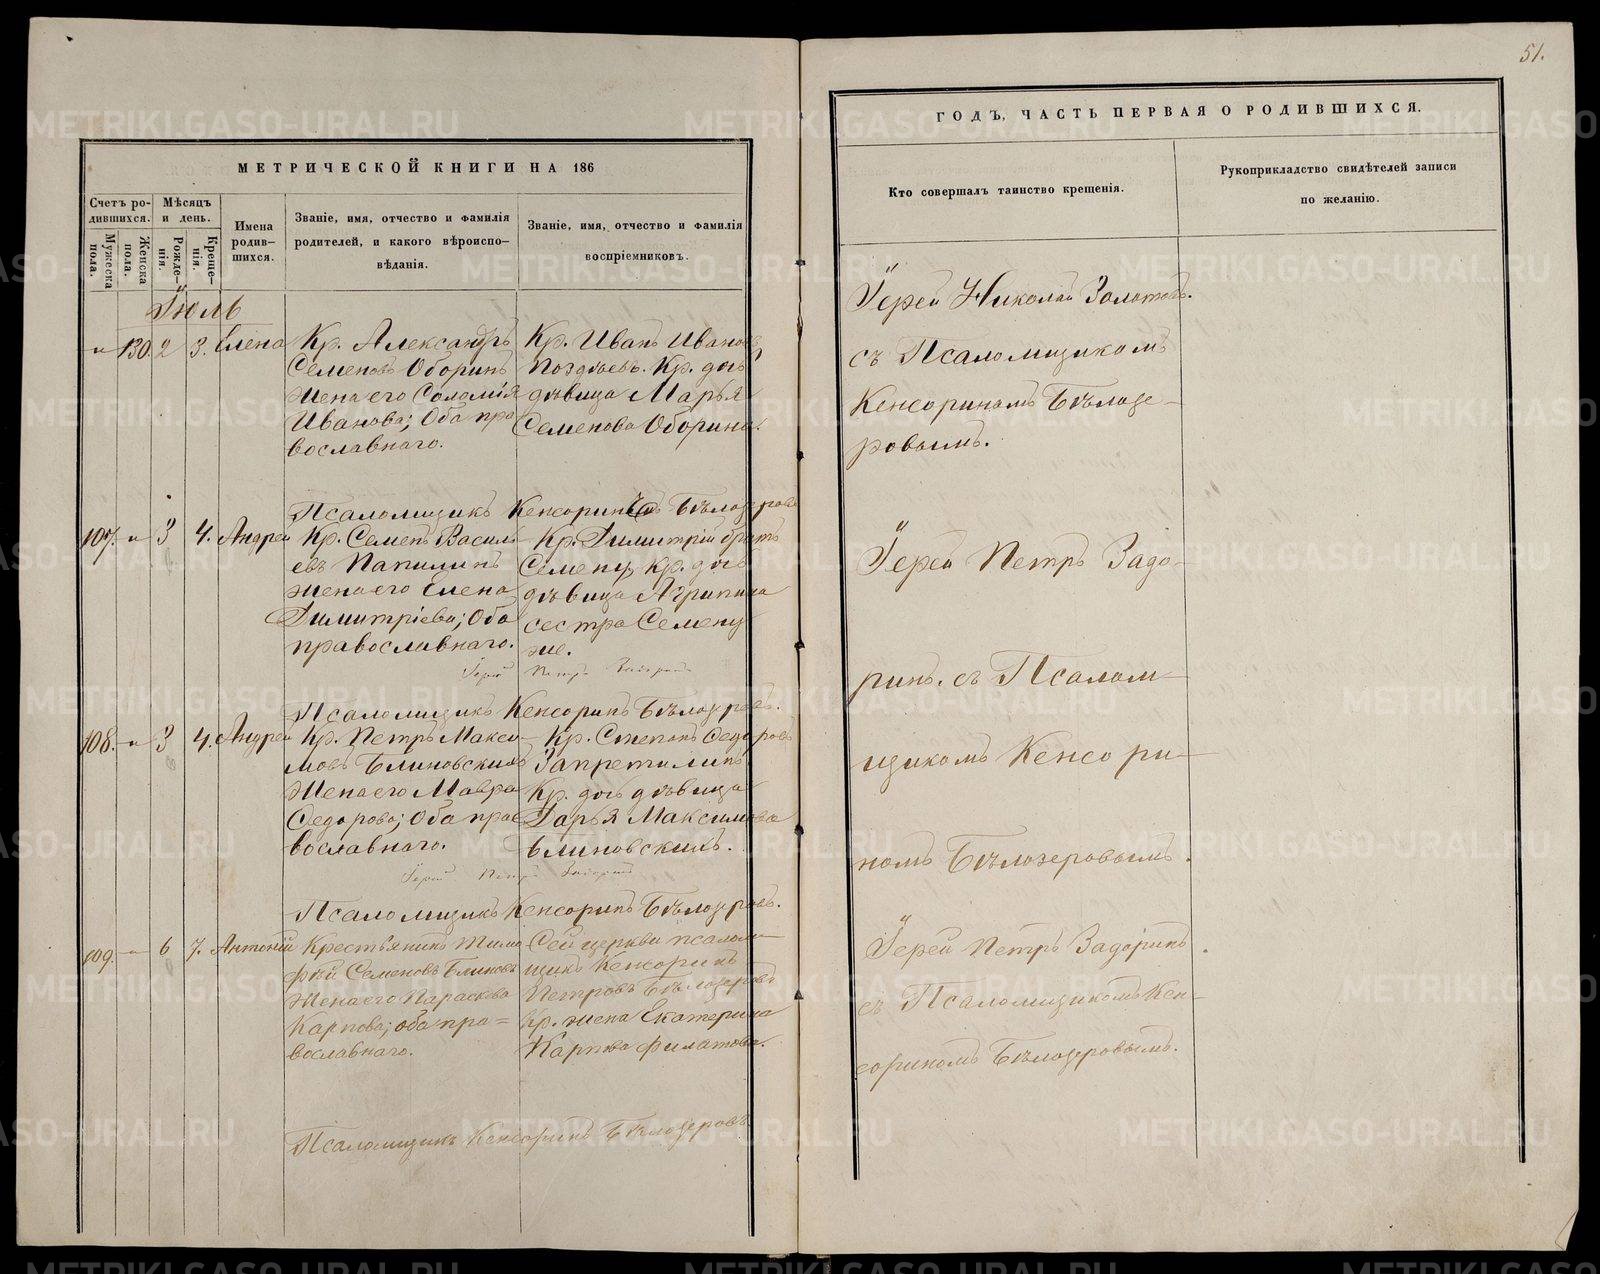 51.
МЕТРИЧЕСКОЙ КНИГИ НА 186
ГОДЪ, ЧАСТЬ ПЕРВАЯ О РОДИВШИХСЯ.
Счетъ ро-
дившихся.
Мужеска
пола.
Женска
пола.
Мѣсяцъ
и день.
Рожде-
нія.
Креще-
нія.
Имена
родив-
шихся.
Званіе, имя, отчество и фамилія
родителей, и какого вѣроиспо-
вѣданія.
Званіе, имя, отчество и фамилія
воспріемниковъ.
Кто совершалъ таинство крещенія.
Рукоприкладство свидѣтелей записи
по желанію.
Іюль
130. 2 3. Елена
Кр. Александръ
Семеновъ Оборинъ
жена его Соломія
Иванова; Оба пра
вославнаго.
Кр. Иванъ Ивановъ
Поздѣевъ. Кр. дочь
дѣвица Марья
Семенова Оборина.
Іерей Николай Золотовъ.
съ Псаломщикомъ
Кенсориномъ Бѣлозе-
ровымъ.
Псаломщикъ Кенсоринъ Бѣлозеровъ
107. 3 4. Андрей
Кр. Семенъ Василь
евъ Папилинъ
жена его Елена
Димитріева; Оба
православнаго.
Кр. Димитрій братъ
Семену, Кр. дочь
дѣвица Агрипина
сестра Семену
же.
Іерей Петръ Задоринъ
Псаломщикъ Кенсоринъ Бѣлозеровъ.
108. 3 4. Андрей
Кр. Петръ Макси-
мовъ Блиновскихъ
жена его Мавра
Федорова; Оба прав
вославнаго.
Кр. Степанъ Федоровъ
Запретилинъ
Кр. дочь дѣвица
Дарья Максимова
Блиновскихъ.
Іерей Петръ Задоринъ
Псаломщикъ Кенсоринъ Бѣлозеровъ.
Іерей Петръ Задо-
ринъ. съ Псалом-
щикомъ Кенсори-
номъ Бѣлозеровымъ.
109. 6 7. Антоній
Крестьянинъ Тимо
фей Семеновъ Блиновъ
жена его Параскева
Карпова; оба пра=
вославнаго.
Сей церкви псалом-
щикъ Кенсоринъ
Петровъ Бѣлозеровъ
Кр. жена Екатерина
Карпова Филатова.
Іерей Петръ Задоринъ.
съ Псаломщикомъ Кен-
сориномъ Бѣлозеровымъ.
Псаломщикъ Кенсоринъ Бѣлозеровъ
METRIKI.GASO-URAL.RU